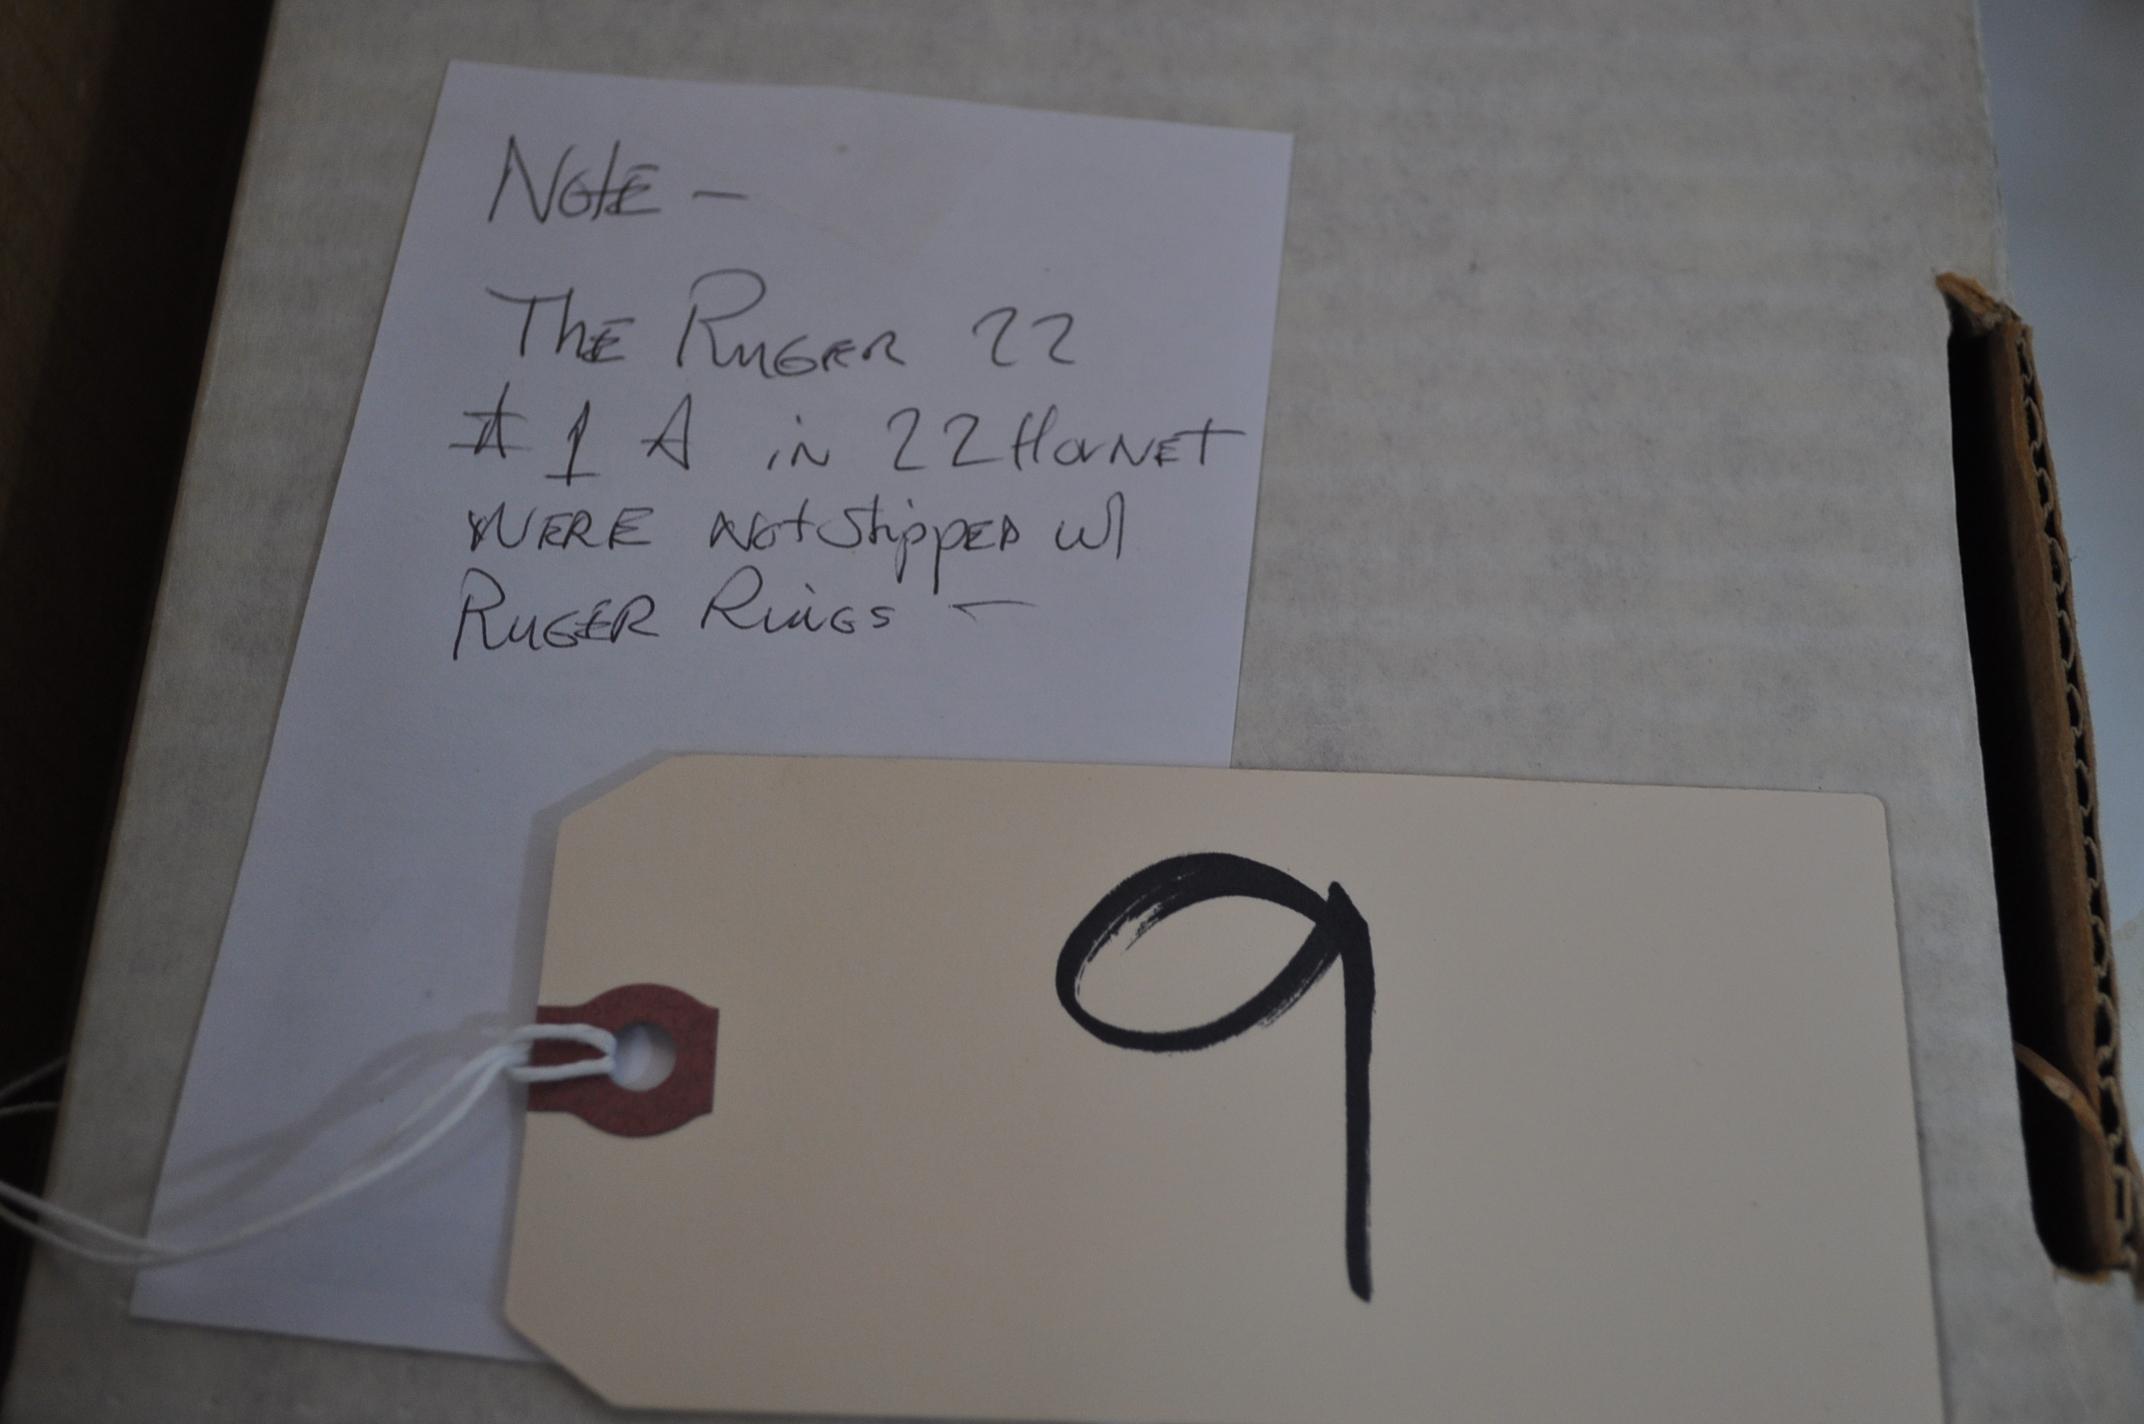 Note -
The Ruger 22
#1 A in 22 Hornet
were not shipped w/
Ruger Rings -
9